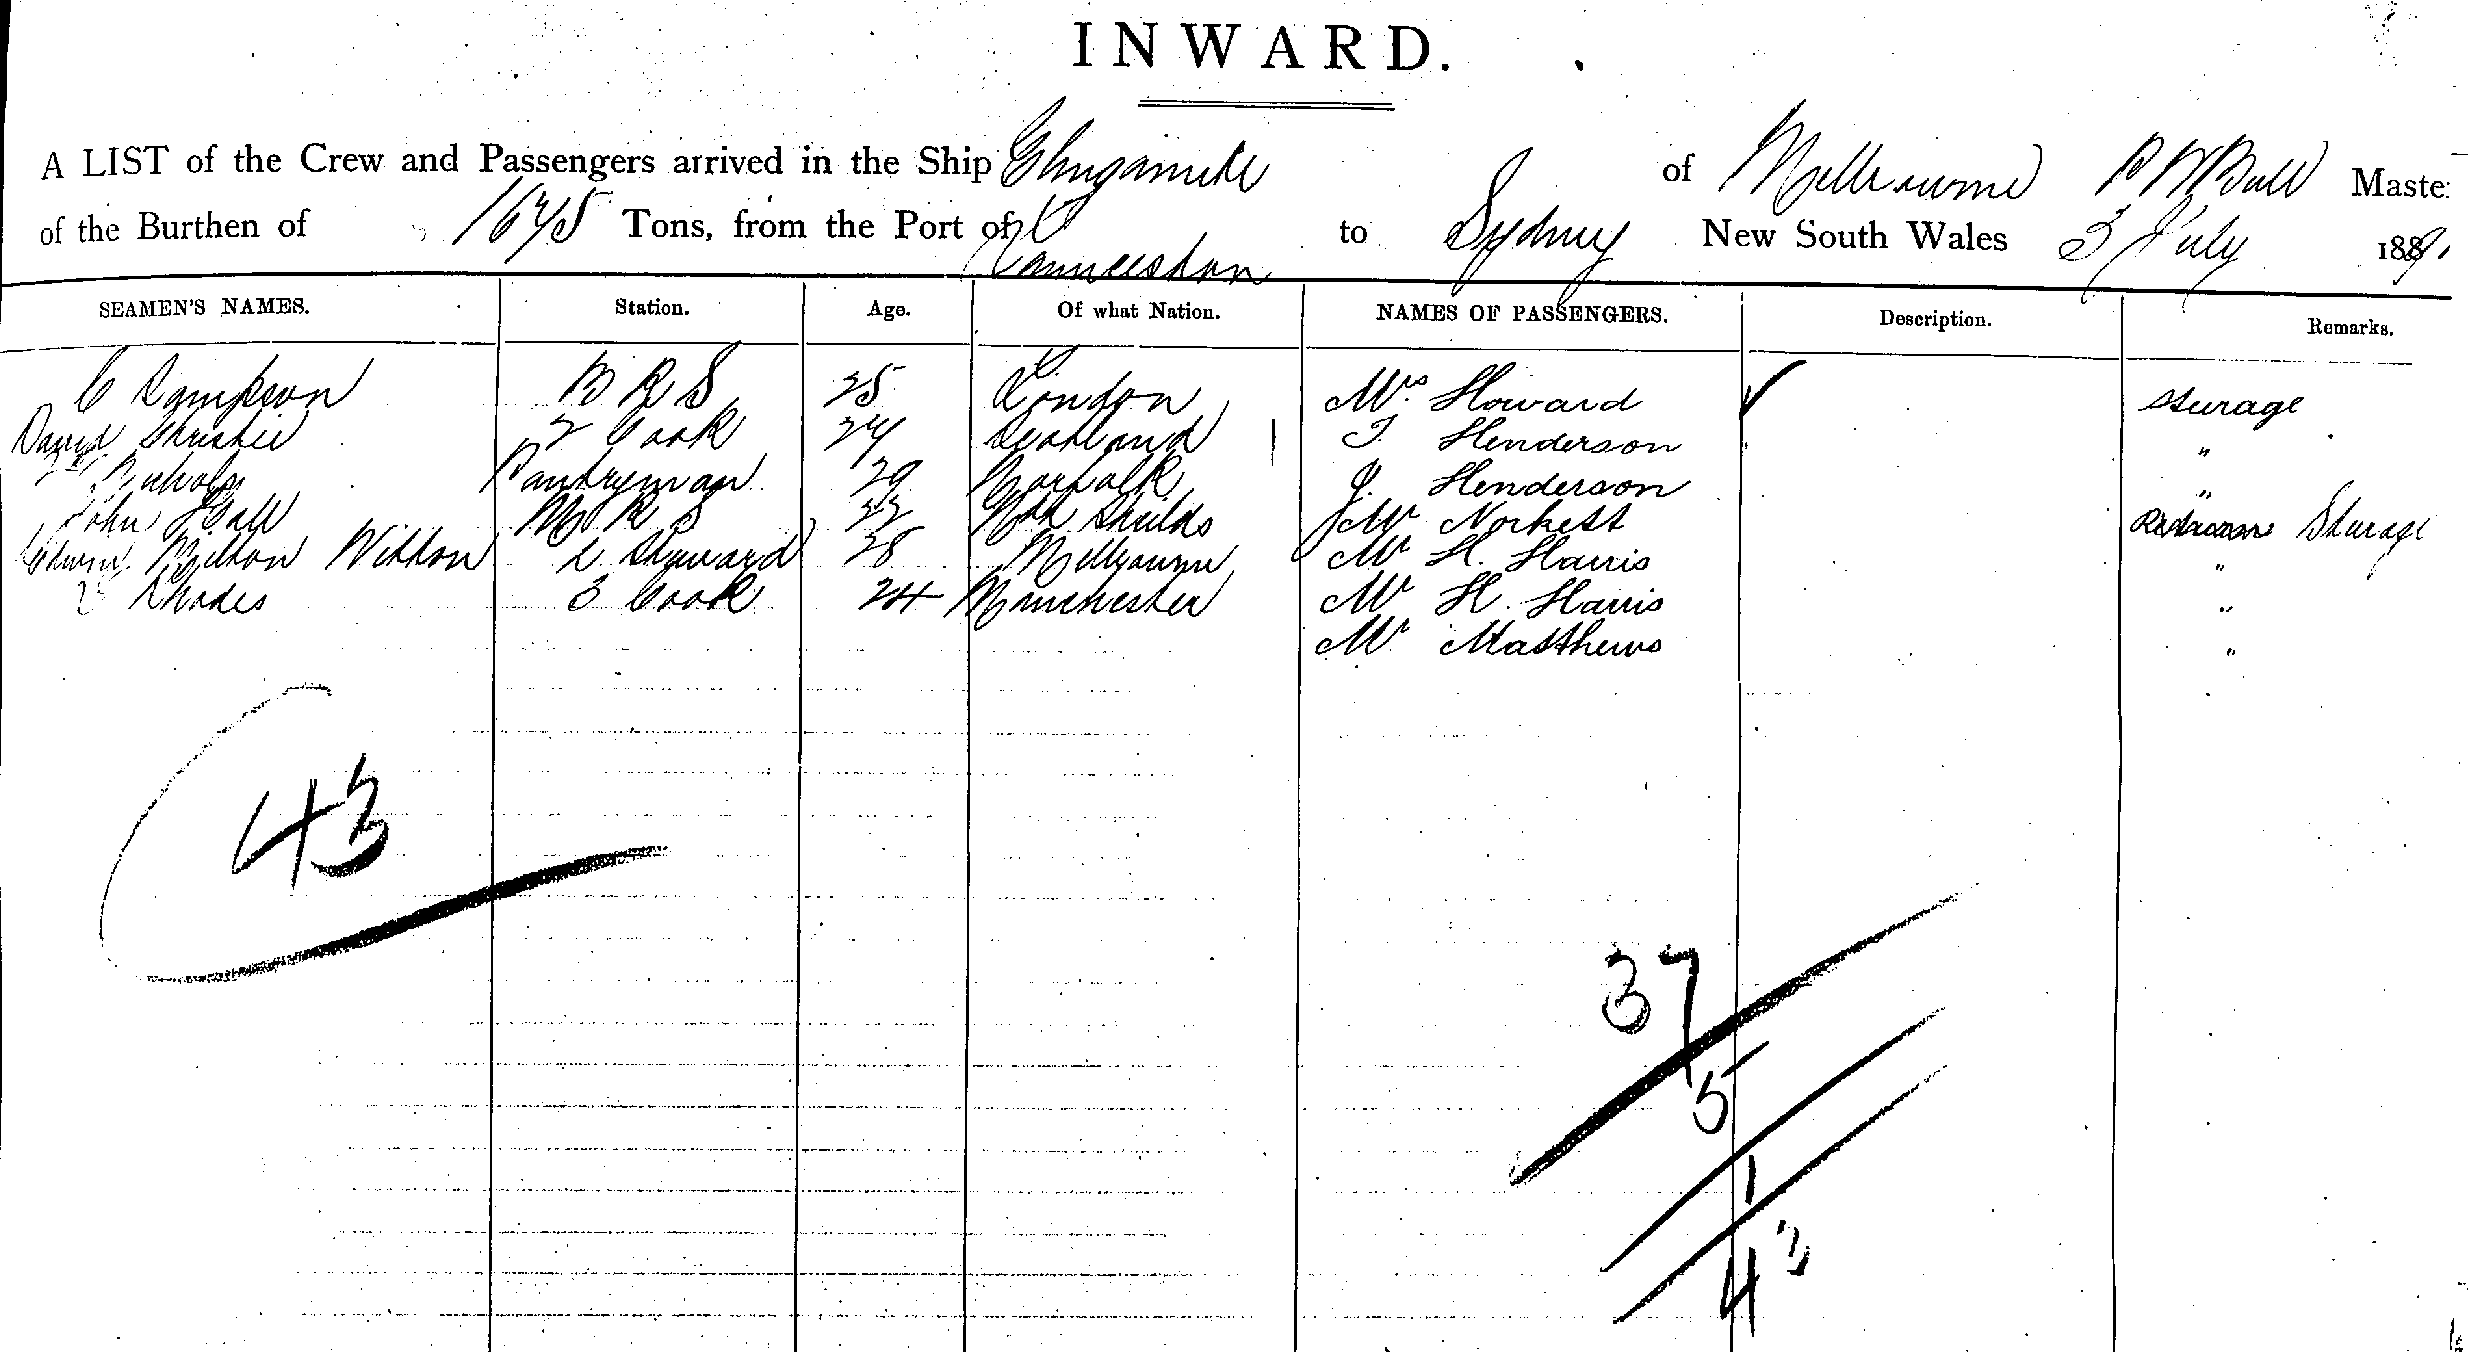 INWARD.
A LIST of the Crew and Passengers arrived in the Ship of Melbourne Maste:
of the Burthen of 1675 Tons, from the Port of Launceston to Sydney New South Wales 3 July 1889.
SEAMEN'S NAMES. Station. Age. Of what Nation. NAMES OF PASSENGERS. Description. Remarks.
C Sampson B R S 25 London Mrs. Howard Sturage
David Christie 2 Cook 24 Scotland T. Henderson "
Nichols Pantryman 29 Norfolk J. Henderson "
John Hall 22 Nth Shields Mr Norkett Sturage
Edwin Milton Witton 2 Steward 28 Melbourne Mr H. Harris "
Rhodes 3 Cook 24 Manchester Mr H. Harris "
Mr Matthews "
43
37
5
1
43